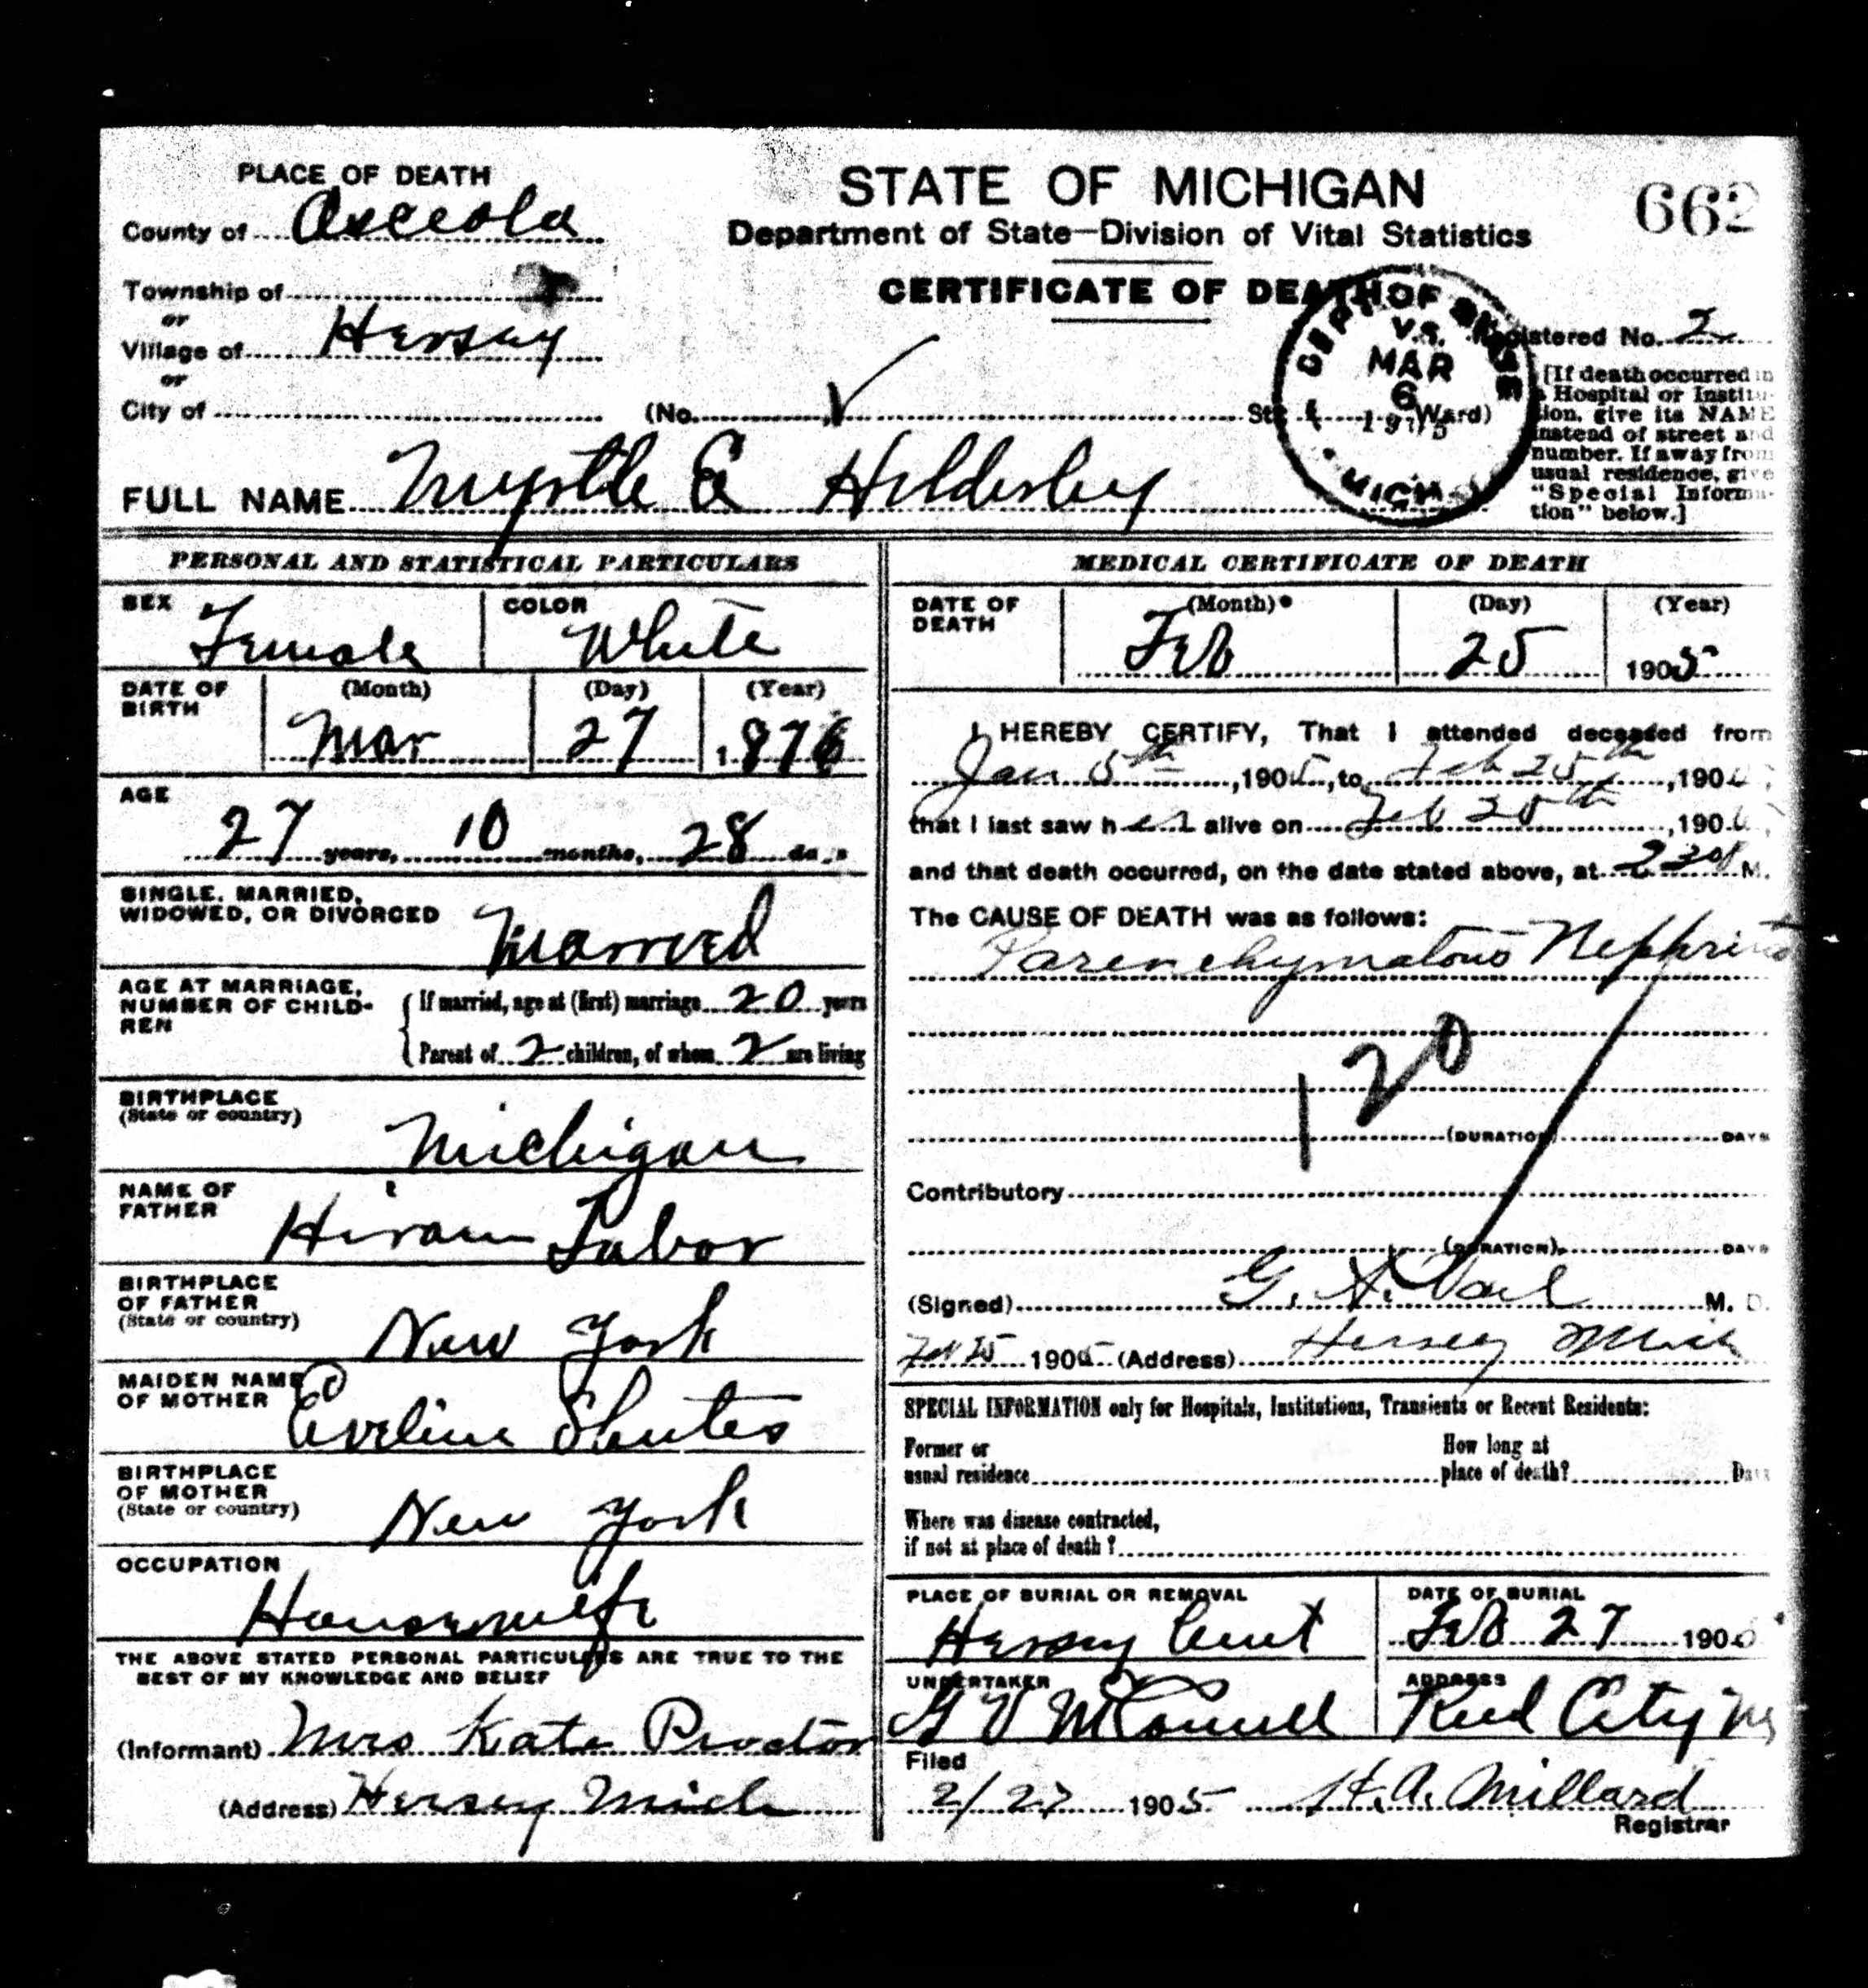 PLACE OF DEATH
County of Osceola
Township of
or
Village of Hersey
or
City of
STATE OF MICHIGAN
Department of State—Division of Vital Statistics
CERTIFICATE OF DEATH
662
Registered No. 2
(No. St. Ward)
V.S.
MAR
6
MICH
[If death occurred in
a Hospital or Institu-
tion, give its NAME
instead of street and
number. If away from
usual residence, give
"Special Informa-
tion" below.]
FULL NAME Myrtle E Hildersley
PERSONAL AND STATISTICAL PARTICULARS
SEX Female
COLOR White
DATE OF BIRTH
(Month) Mar
(Day) 27
(Year) 1876
AGE
27 years, 10 months, 28 days
SINGLE, MARRIED,
WIDOWED, OR DIVORCED Married
AGE AT MARRIAGE,
NUMBER OF CHILD-
REN
If married, age at (first) marriage 20 years
Parent of 2 children, of whom 2 are living
BIRTHPLACE
(State or country)
Michigan
NAME OF
FATHER
Hiram Tabor
BIRTHPLACE
OF FATHER
(State or country)
New York
MAIDEN NAME
OF MOTHER
Eveline Shutes
BIRTHPLACE
OF MOTHER
(State or country)
New York
OCCUPATION
Housewife
THE ABOVE STATED PERSONAL PARTICULARS ARE TRUE TO THE
BEST OF MY KNOWLEDGE AND BELIEF
(Informant) Mrs Kate Proctor
(Address) Hersey Mich
MEDICAL CERTIFICATE OF DEATH
DATE OF
DEATH
(Month) Feb
(Day) 25
(Year) 1905
I HEREBY CERTIFY, That I attended deceased from
Jan 5th, 1905, to Feb 25th, 1905,
that I last saw her alive on Feb 25th, 1905,
and that death occurred, on the date stated above, at M.
The CAUSE OF DEATH was as follows:
Parenchymatous Nephritis
120
(DURATION) DAYS
Contributory
(DURATION) DAYS
(Signed) G. A. Vail M. D.
Feb 25 1905 (Address) Hersey Mich
SPECIAL INFORMATION only for Hospitals, Institutions, Transients or Recent Residents:
Former or
usual residence
How long at
place of death? Days
Where was disease contracted,
if not at place of death?
PLACE OF BURIAL OR REMOVAL
Hersey Cemt
DATE OF BURIAL
Feb 27 1905
UNDERTAKER
McConnell
ADDRESS
Reed City
Filed
2/27 1905 H. A. Millard
Registrar